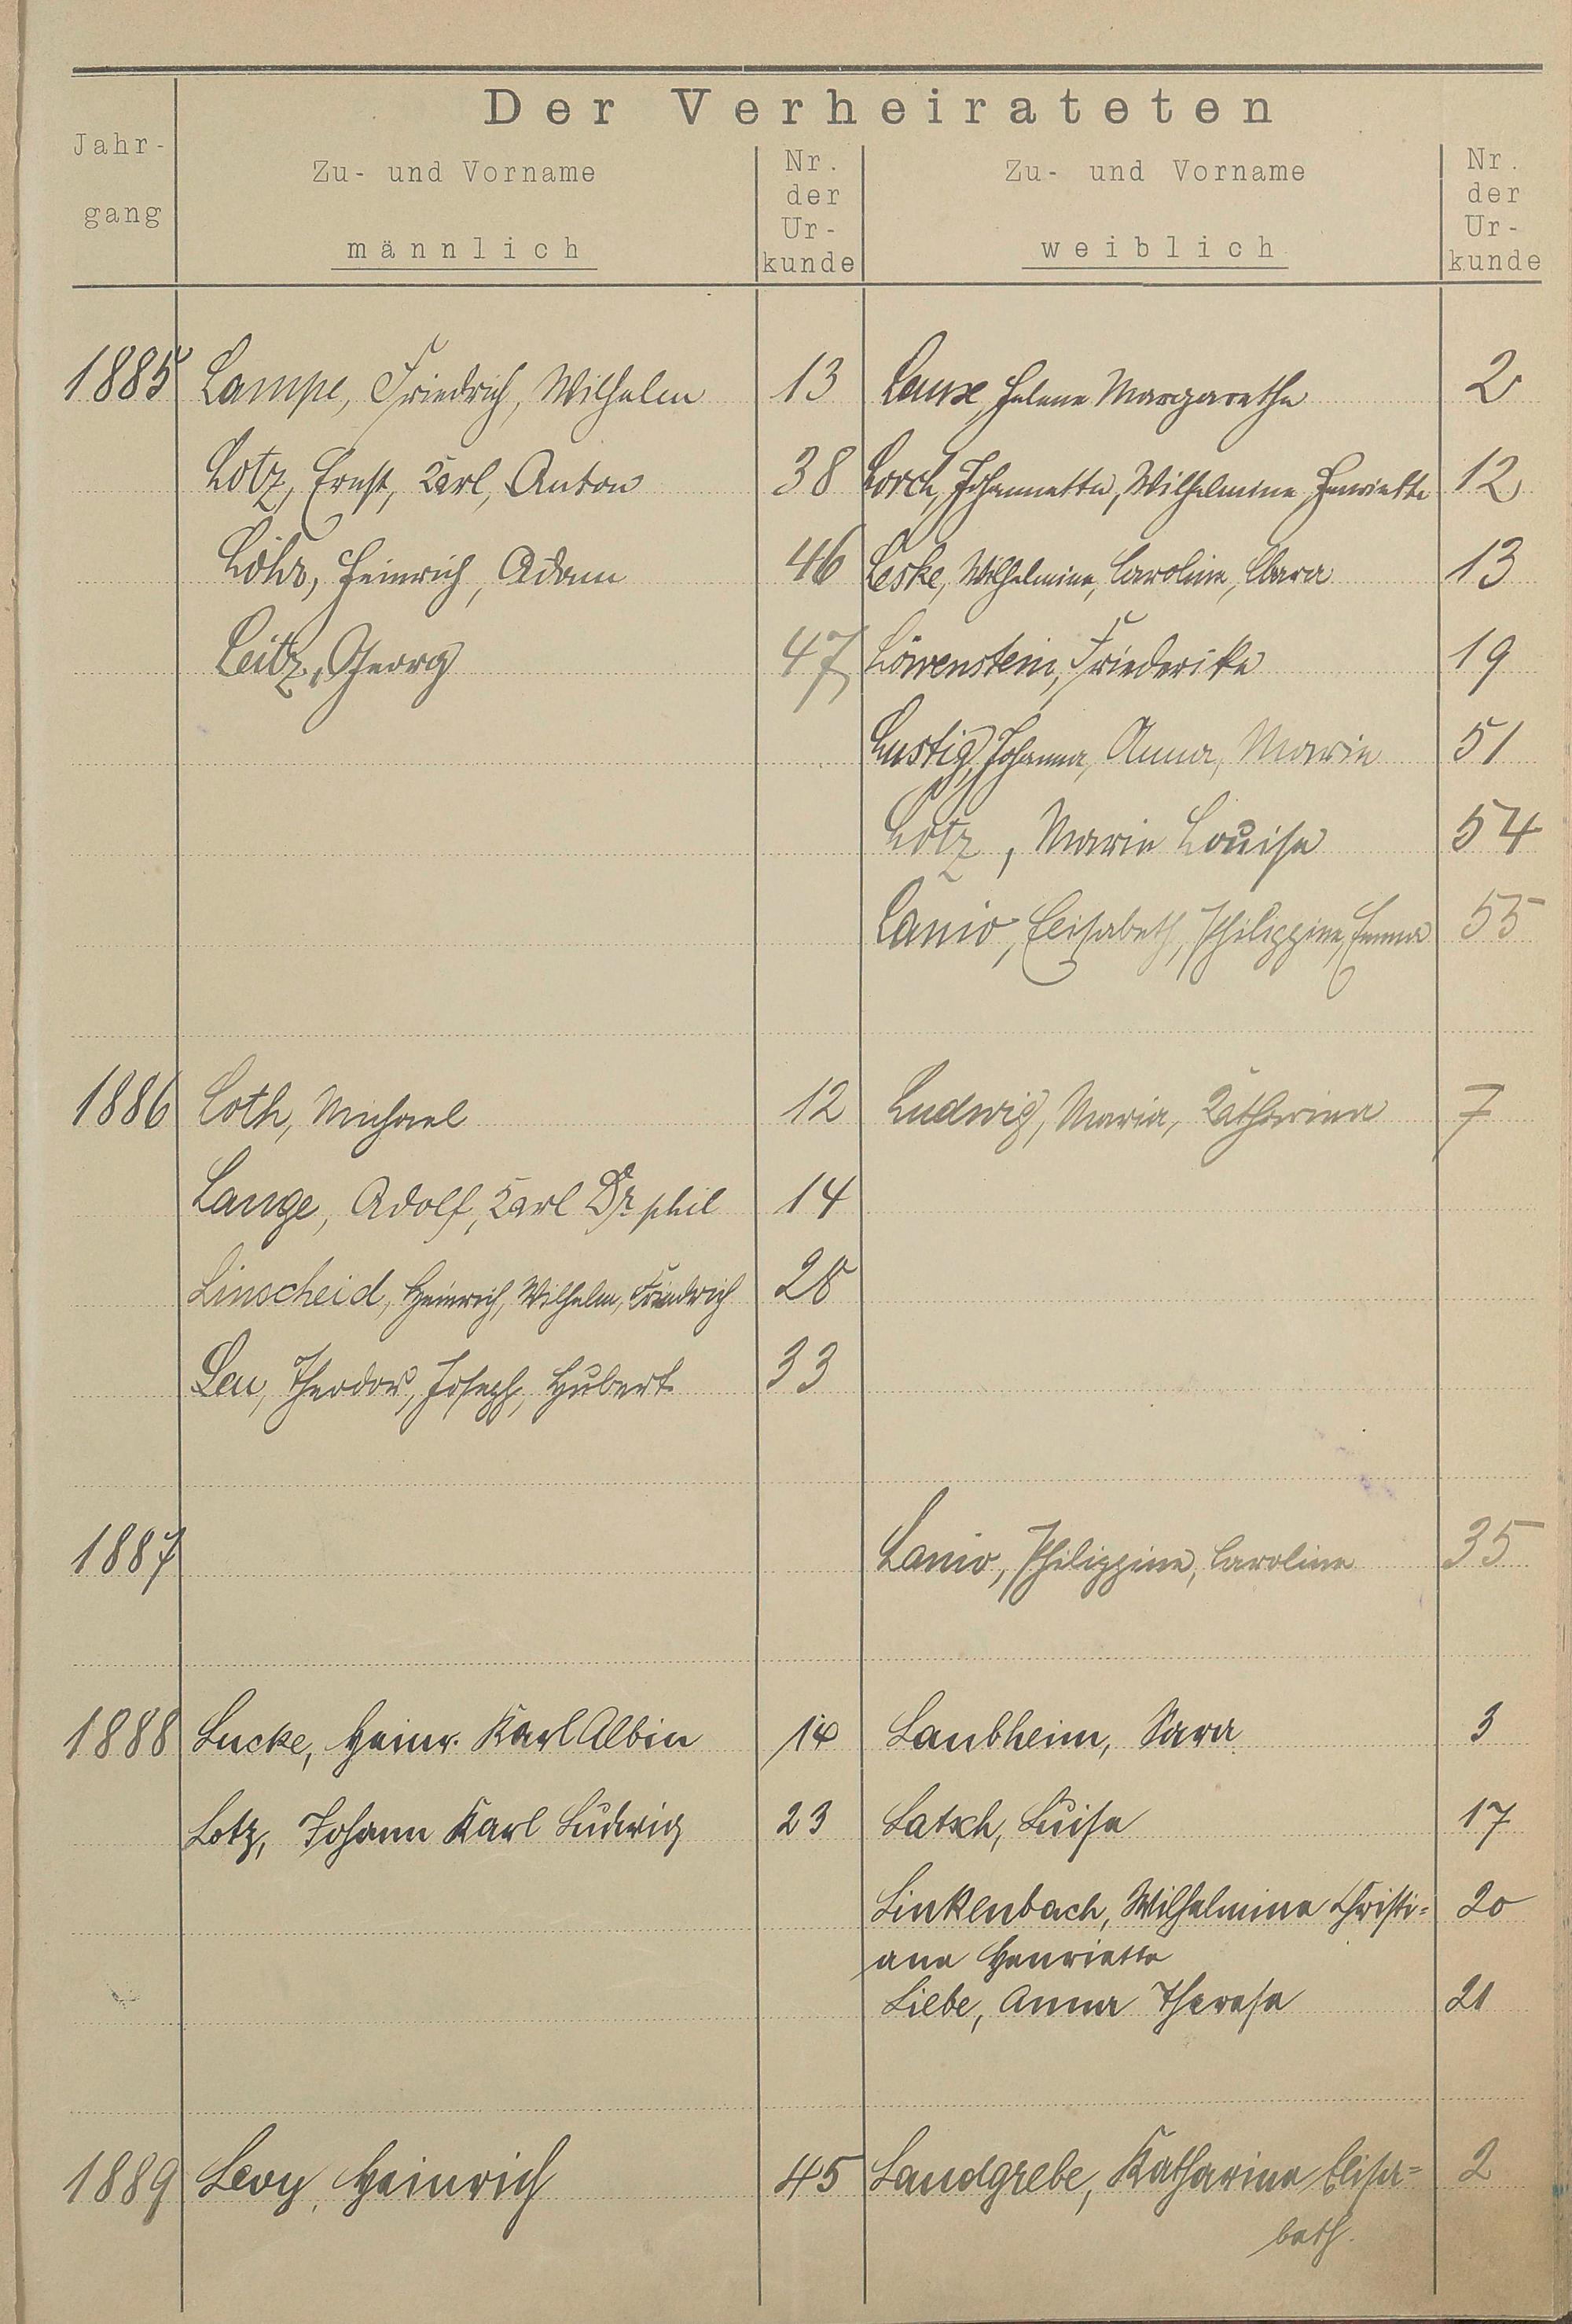 Der Verheirateten
Jahr-
gang
Zu- und Vorname
männlich
Nr.
der
Ur-
kunde
Zu- und Vorname
weiblich
Nr.
der
Ur-
kunde
1885 Lampe, Friedrich, Wilhelm 13 Helene Margarethe 2
Lotz, Ernst, Karl, Anton 38 Lorch, Johannette, Wilhelmine Henriette 12
Löhr, Heinrich, Adam 46 Leske, Wilhelmine, Caroline, Clara 13
Leitz, Georg 47 Löwenstein, Friederike 19
Lustig, Johanna, Anna, Marie 51
Lotz, Marie Louise 54
Lanio, Elisabeth, Philippine, Emma 55
1886 Loth, Michael 12 Ludwig, Maria, Katharina 7
Lange, Adolf, Karl Dr phil 14
Linscheid, Heinrich, Wilhelm, Friedrich 28
Leu, Theodor, Joseph, Hubert 33
1887 Lanio, Philippine, Caroline 35
1888 Lucke, Heinr. Karl Albin 14 Laubheim, Sara 3
Lotz, Johann Karl Ludwig 23 Latsch, Luise 17
Linkenbach, Wilhelmine Christi= 20
ane Henriette
Liebe, Anna Therese 21
1889 Levy, Heinrich 45 Landgrebe, Katharine Elisa= 2
beth.